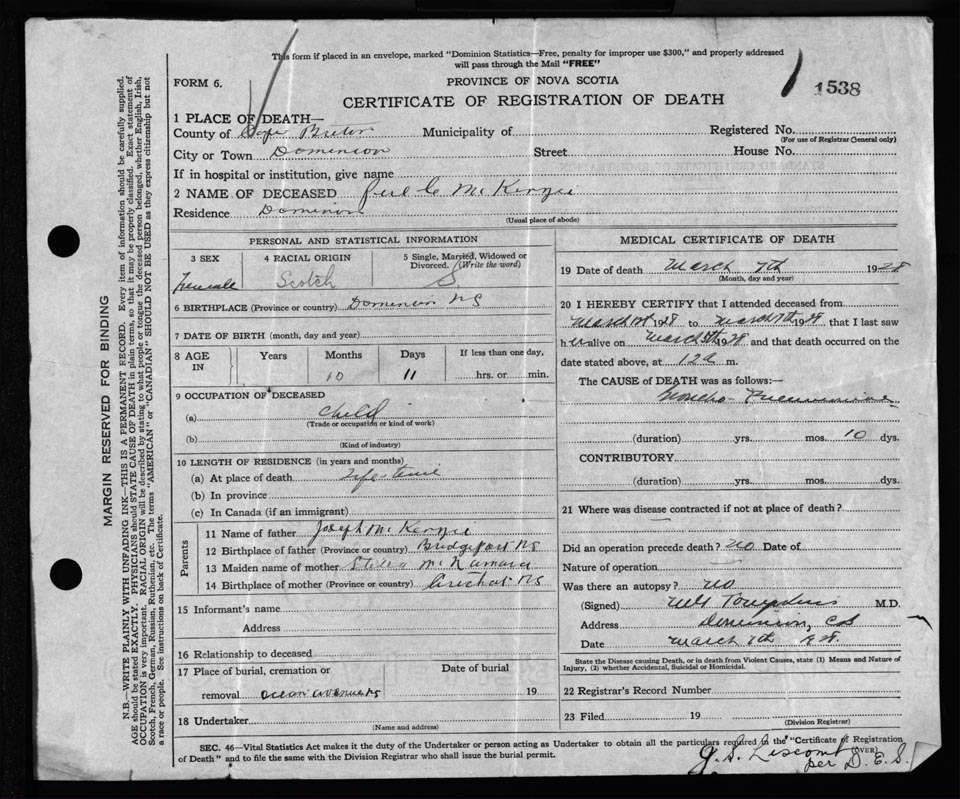 This form if placed in an envelope, marked "Dominion Statistics—Free, penalty for improper use $300," and properly addressed
will pass through the Mail "FREE"
FORM 6.
PROVINCE OF NOVA SCOTIA
1538
CERTIFICATE OF REGISTRATION OF DEATH
1 PLACE OF DEATH—
County of Cape Breton Municipality of Registered No.
(For use of Registrar General only)
City or Town Dominion Street House No.
If in hospital or institution, give name
2 NAME OF DECEASED C McKenzie
Residence Dominion
(Usual place of abode)
PERSONAL AND STATISTICAL INFORMATION
3 SEX 4 RACIAL ORIGIN 5 Single, Married, Widowed or
Divorced. (Write the word)
Female Scotch S
6 BIRTHPLACE (Province or country) Dominion NS
7 DATE OF BIRTH (month, day and year)
8 AGE IN Years Months Days If less than one day,
10 11 hrs. or min.
9 OCCUPATION OF DECEASED
(a) Child
(Trade or occupation or kind of work)
(b)
(Kind of industry)
10 LENGTH OF RESIDENCE (in years and months)
(a) At place of death Life-time
(b) In province
(c) In Canada (if an immigrant)
Parents
11 Name of father Joseph McKenzie
12 Birthplace of father (Province or country) Bridgeport NS
13 Maiden name of mother Stella McNamara
14 Birthplace of mother (Province or country) Arichat NS
15 Informant's name
Address
16 Relationship to deceased
17 Place of burial, cremation or Date of burial
removal 19
18 Undertaker
(Name and address)
MEDICAL CERTIFICATE OF DEATH
19 Date of death March 7th 1928
(Month, day and year)
20 I HEREBY CERTIFY that I attended deceased from
March 1st 1928 to March 7th 1928 that I last saw
her alive on March 5th 1928 and that death occurred on the
date stated above, at 12 a m.
The CAUSE of DEATH was as follows:—
Broncho-Pneumonia
(duration) yrs. mos. 10 dys.
CONTRIBUTORY
(duration) yrs. mos. dys.
21 Where was disease contracted if not at place of death?
Did an operation precede death? No Date of
Nature of operation
Was there an autopsy? No
(Signed) Tompkins M.D.
Address Dominion, CB
Date March 7th 28.
State the Disease causing Death, or in death from Violent Causes, state (1) Means and Nature of
Injury, (2) whether Accidental, Suicidal or Homicidal.
22 Registrar's Record Number
23 Filed 19
(Division Registrar)
SEC. 46—Vital Statistics Act makes it the duty of the Undertaker or person acting as Undertaker to obtain all the particulars required in the "Certificate of Registration
of Death" and to file the same with the Division Registrar who shall issue the burial permit.
(OVER)
J. S. Liscomb
per D. E. S.
MARGIN RESERVED FOR BINDING
N.B.—WRITE PLAINLY WITH UNFADING INK—THIS IS A PERMANENT RECORD. Every item of information should be carefully supplied.
AGE should be stated EXACTLY. PHYSICIANS should STATE CAUSE OF DEATH in plain terms, so that it may be properly classified. Exact statement of
OCCUPATION is very important. RACIAL ORIGIN will be described by stating to what people or tongue the deceased person belonged, whether English, Irish,
Scotch, French, German, Russian, Ruthenian, etc. The terms "AMERICAN" or "CANADIAN" SHOULD NOT BE USED as they express citizenship but not
a race or people. See instructions on back of Certificate.